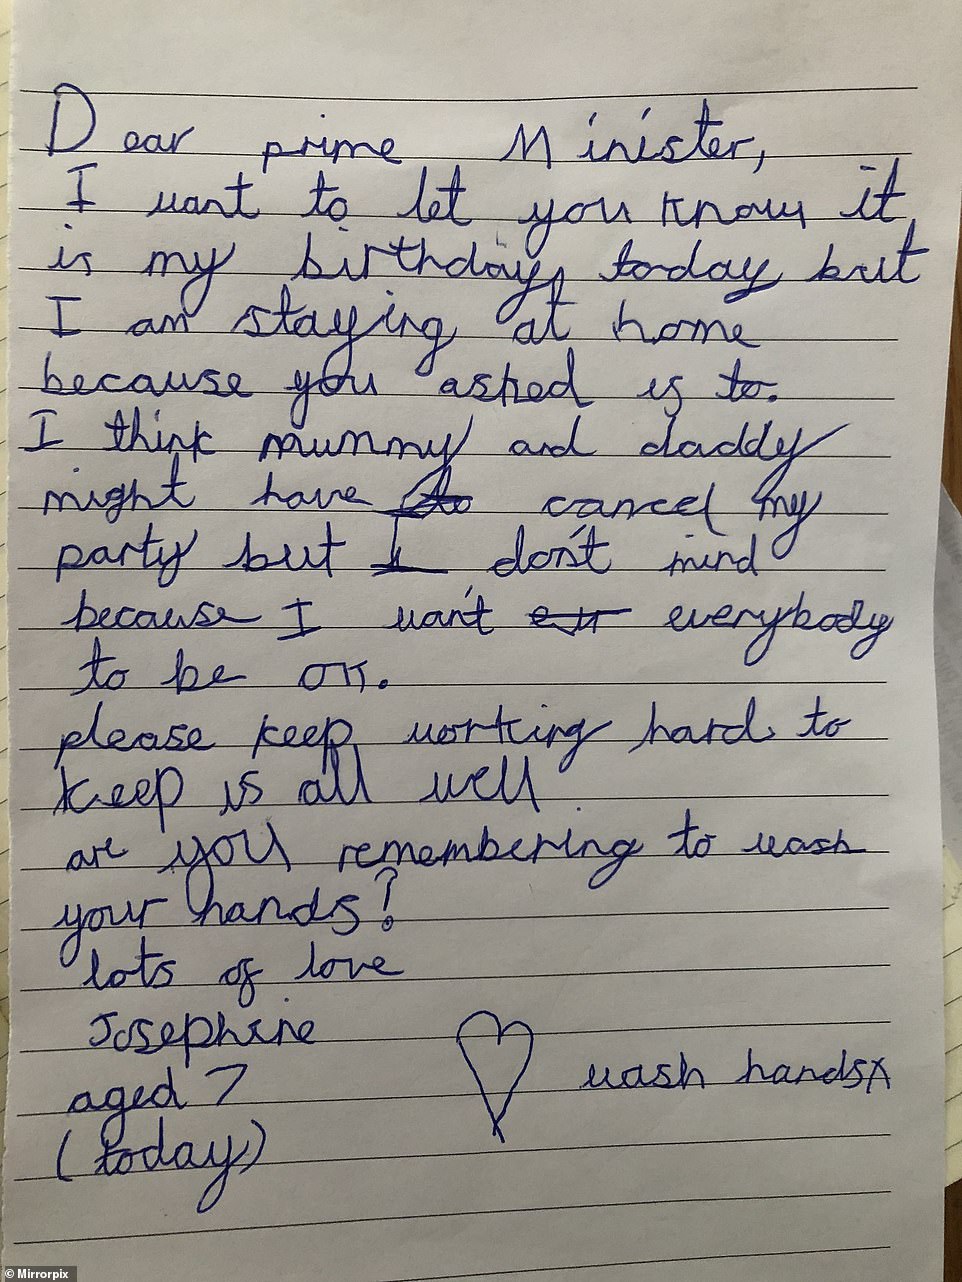 Dear prime Minister,
I want to let you know it
is my birthday today but
I am staying at home
because you asked us to.
I think mummy and daddy
might have to cancel my
party but I don't mind
because I want everybody
to be ok.
please keep working hard to
keep us all well
are you remembering to wash
your hands?
lots of love
Josephine
aged 7
wash hands x
(today)
© Mirrorpix